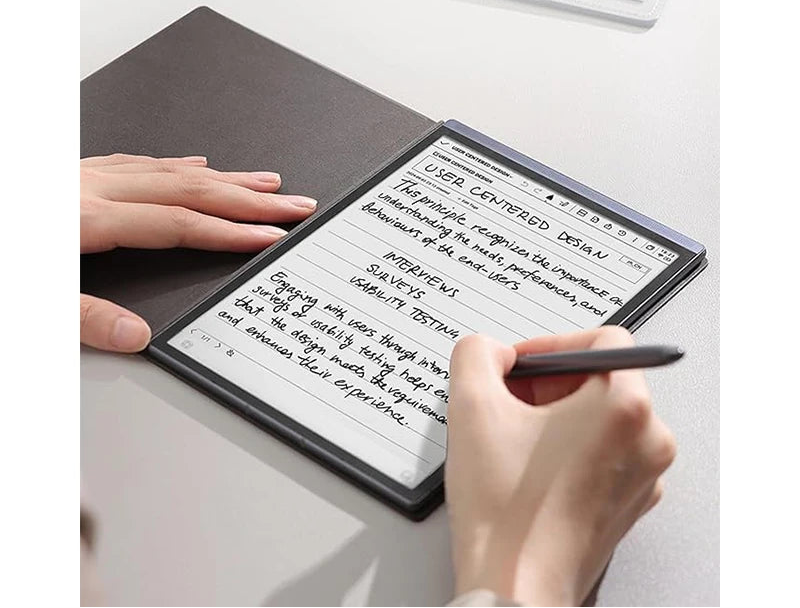 USER CENTERED DESIGN
USER CENTERED DESIGN
USER CENTERED DESIGN
This principle recognizes the importance of
understanding the needs, preferences, and
behaviours of the end-users
INTERVIEWS
SURVEYS
USABILITY TESTING
Engaging with users through
surveys or usability testing helps
that the design meets the
and enhances their experience.
1/1